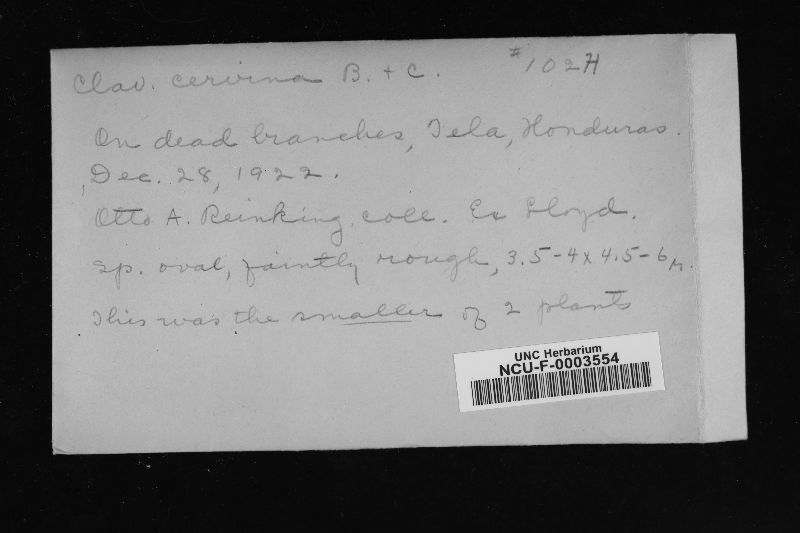 Clav. cervina B. + C. #102H
On dead branches, Tela, Honduras.
Dec. 28, 1922.
Otto A. Reinking, coll. Ex Lloyd.
Sp. oval, faintly rough, 3.5-4 x 4.5-6 µ.
This was the smaller of 2 plants
UNC Herbarium
NCU-F-0003554